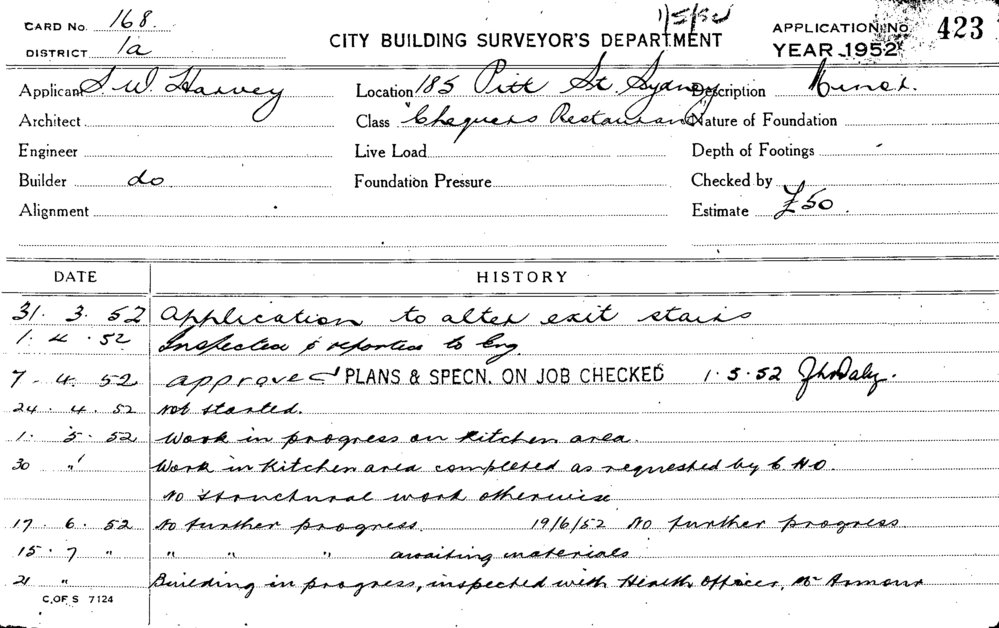 1/5/52
CARD No. 168.
DISTRICT 1a
CITY BUILDING SURVEYOR'S DEPARTMENT
APPLICATION No. 423
YEAR 1952
Applicant S. W. Harvey
Location 185 Pitt St. Sydney
Description Minor.
Architect
Class "Chequers Restaurant"
Nature of Foundation
Engineer
Live Load
Depth of Footings
Builder do
Foundation Pressure
Checked by
Alignment
Estimate £50.
DATE HISTORY
31. 3. 52 Application to alter exit stairs
1. 4. 52 Inspected & reported to Eng.
7. 4. 52 approved PLANS & SPECN. ON JOB CHECKED 1.5.52
24. 4. 52 Not started.
1. 5. 52 Work in progress on kitchen area.
30 " Work in kitchen area completed as requested by C.H.O.
No structural work otherwise
17. 6. 52 No further progress. 19/6/52 No further progress
15. 7 " " " " awaiting materials
21 " Building in progress, inspected with Health Officer, Mr Armour
C. OF S 7124